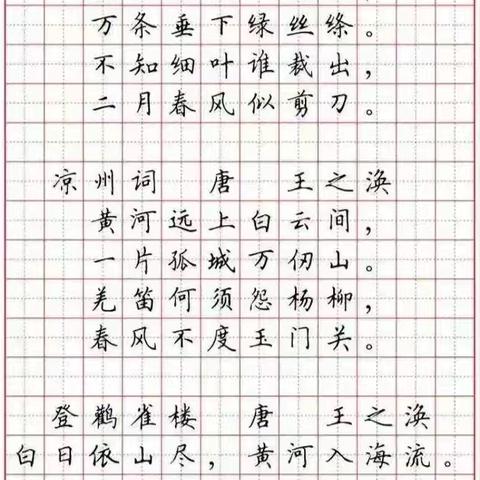 万条垂下绿丝绦。
不知细叶谁裁出，
二月春风似剪刀。
凉州词 唐 王之涣
黄河远上白云间，
一片孤城万仞山。
羌笛何须怨杨柳，
春风不度玉门关。
登鹳雀楼 唐 王之涣
白日依山尽，黄河入海流。